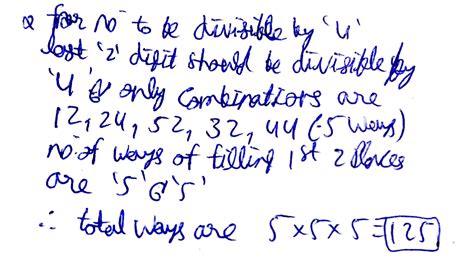 for no to be divisible by '4'
last '2' digit should be divisible by
'4' & only combinations are
12, 24, 52, 32, 44 (5 ways)
no of ways of filling 1st 2 places
are '5' & '5'
∴ total ways are 5×5×5=125